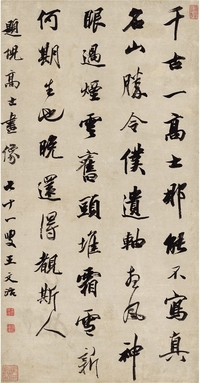 千古一高士那能不寫真
名山勝令僕遺軸風神
眼過煙雲舊頭堆霜雪新
何期生也晚還得覩斯人
題倪高士畫像 七十一叟王文治